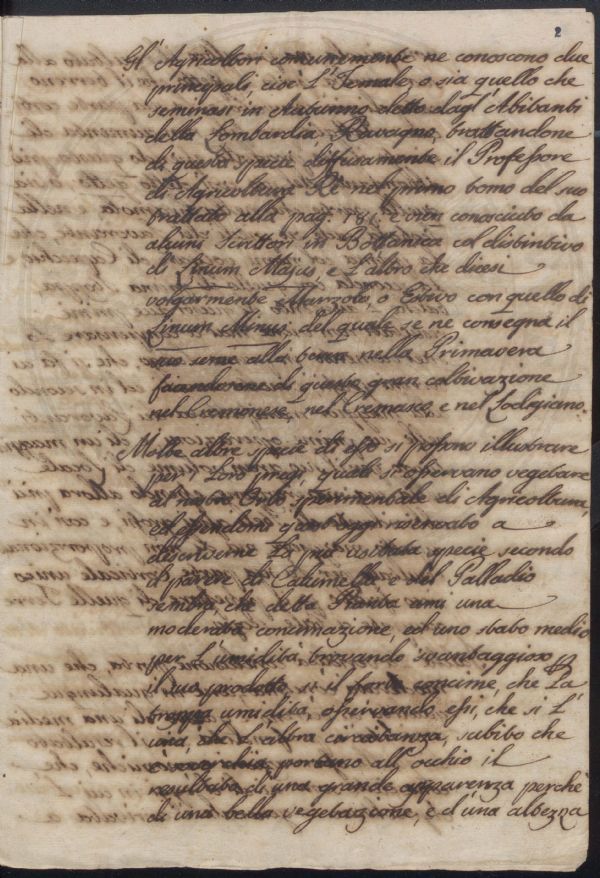 2
Gl' Agricoltori comunemente ne conoscono due
principali, cioè L' Jemale, o sia quello che
seminasi in Autunno detto dagl' Abitanti
della Lombardia Ravagno, trattandone
di questa specie diffusamente il Professore
di Agricoltura Rè nel primo tomo del suo
trattato alla pag. 181. e vien conosciuto da
alcuni Scrittori in Bottanica col distintivo
di Linum Majus, e L'altro che dicesi
volgarmente Marzolo, o Estivo con quello di
Linum Minus, del quale se ne consegna il
suo seme alla terra nella Primavera
facendosene di questo gran coltivazione
nel Cremonese, nel Cremasco, e nel Lodigiano.
Molte altre specie di esso si possono illustrare
per i loro pregi, quali si osservano vegetare
al nostro Orto sperimentale di Agricoltura,
ed essendomi quest'oggi riservato a
descriverne La più usitata specie secondo
il parere di Columella e del Palladio
sembra, che detta Pianta ami una
moderata concimazione, ed uno stato medio
per L'umidità, trovando svantaggioso p
il suo prodotto sì il forte concime, che La
troppa umidità, osservando essi, che sì L'
una, che L'altra circostanza, subito che
portano all' occhio il
resultato di una grande apparenza perchè
di una bella vegetazione, e d'una altezza